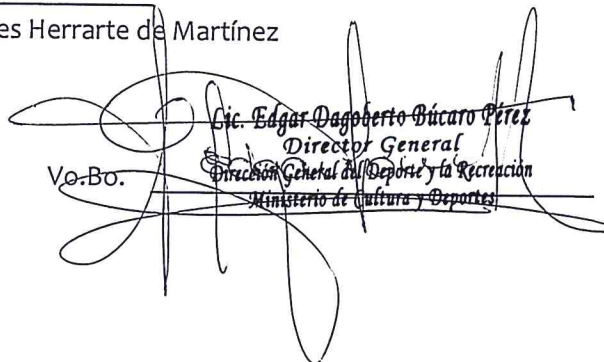 es Herrarte de Martínez
Lic. Edgar Dagoberto Búcaro Pérez
Director General
Dirección General del Deporte y la Recreación
Vo.Bo.
Ministerio de Cultura y Deportes